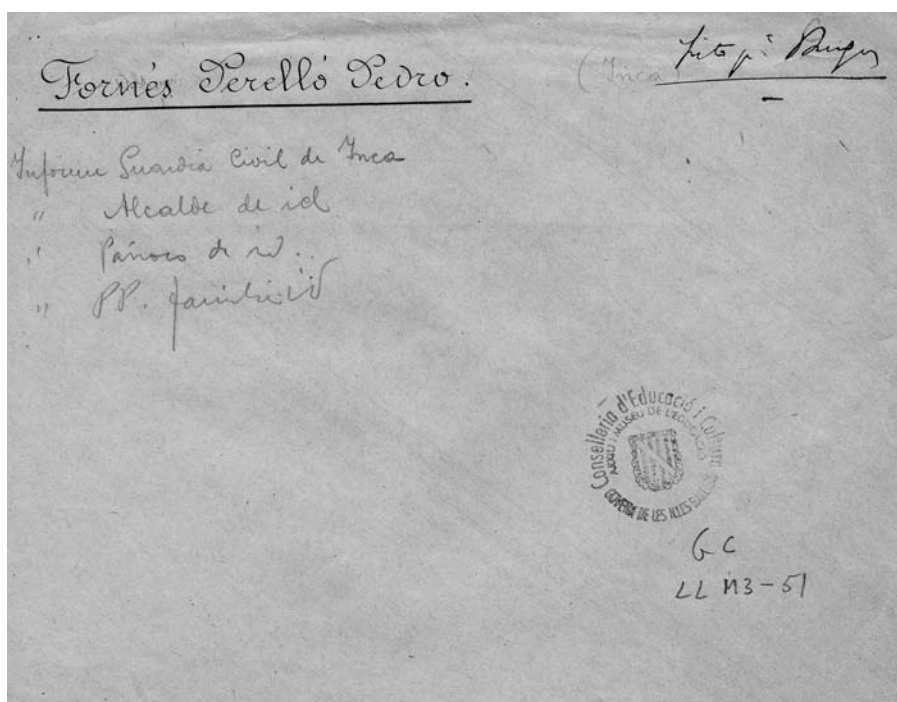 Fornés Perelló Pedro.
(Inca)
Informe Guardia Civil de Inca
" Alcalde de id.
" Párroco de id.
" PP.
Conselleria d'Educació i Cultura
ARXIU I MUSEU DE L'EDUCACIÓ
GOVERN DE LES ILLES BALEARS
GC
LL M3-51